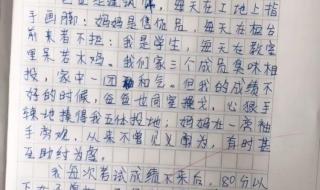 建筑师,每天在工地上指
手画脚;妈妈是售货员,每天在柜台
前来者不拒;我是学生,每天在教室
里呆若木鸡。我们家三个成员臭味相
投,家中一团和气。但我的成绩不
好的时候,爸爸也同室操戈,心狠手
辣地揍得我五体投地;妈妈在一旁袖
手旁观,从来不曾见义勇为,有时甚
至助纣为虐。
我每次考试成绩下来后,80分以